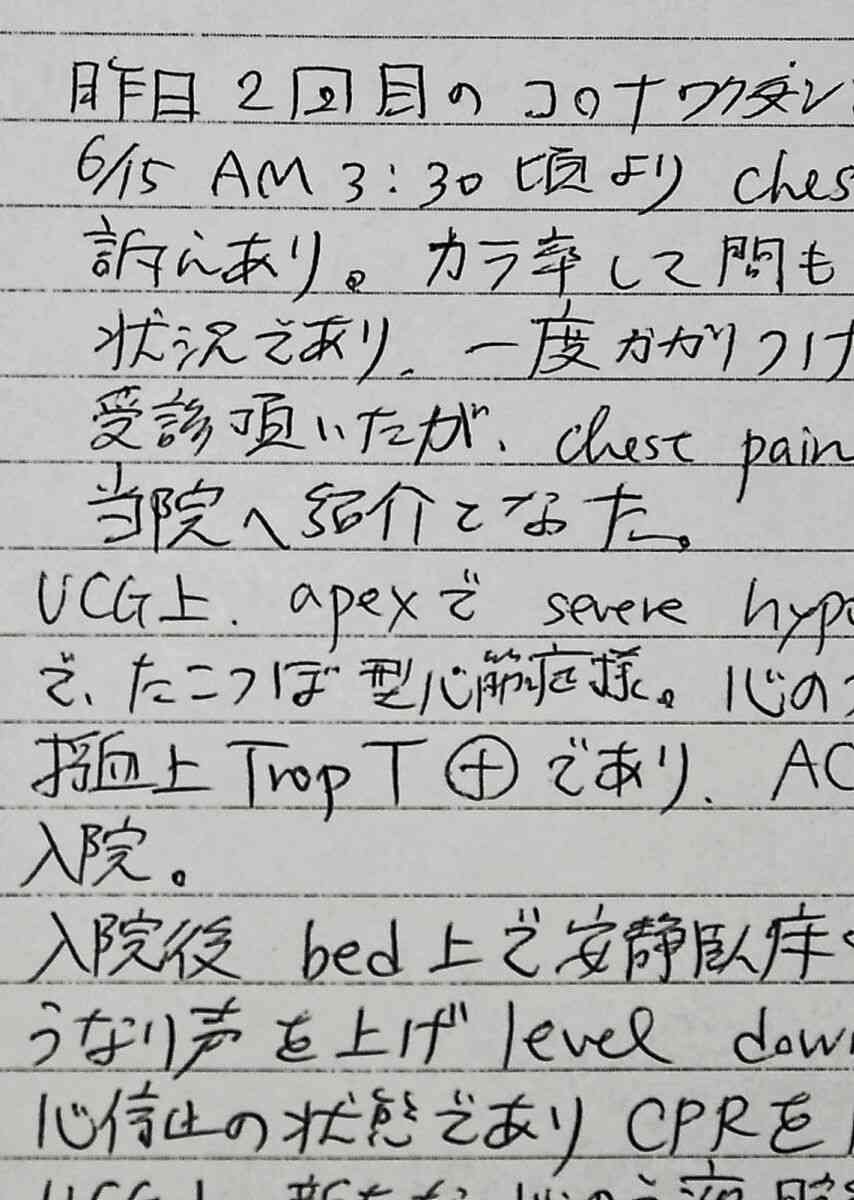 昨日2回目のコロナワクチン
6/15 AM 3:30頃より ches
訴えあり。カテ卒して間も
状況であり、一度かかりつけ
受診頂いたが、chest pain
当院へ紹介となった。
UCG上、apexで severe hypo
で、たこつぼ型心筋症様。心の
採血上 Trop T ⊕であり、AC
入院。
入院後 bed上で安静臥床
うなり声を上げ level down
心停止の状態であり CPRを
UCG上 新たな心のう液